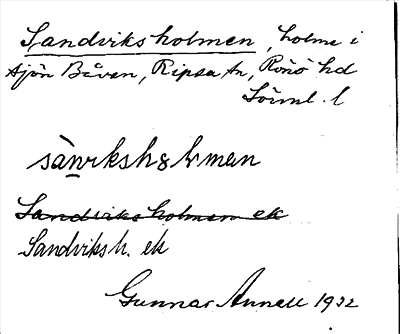 Sandviksholmen, holme i
sjön Båven, Ripsa sn, Rönö hd
Sörml. l
sànvikshålman
Sandviksholmen ek
Sandviksh. ek
Gunnar Annell 1932